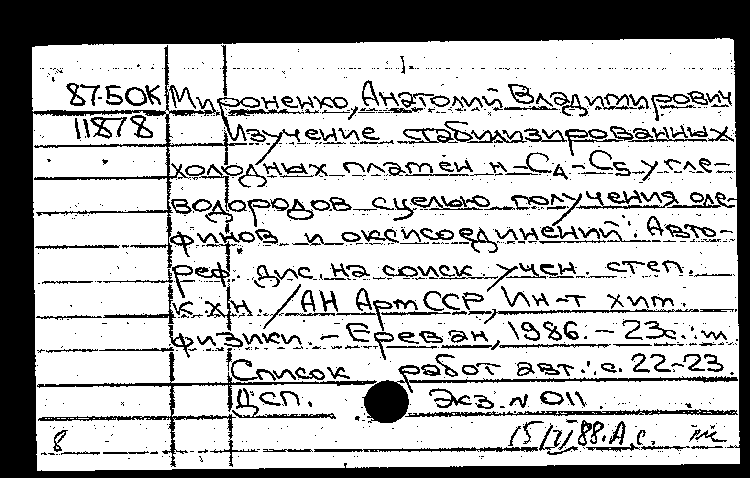 87-5OK Мироненко, Анатолий Владимирович
11878 Изучение стабилизированных
холодных пламен н-C4-C5 угле-
водородов с целью получения оле-
финов и оксисоединений: Авто-
реф. дис. на соиск. учен. степ.
к.х.н. / АН АрмССР, Ин-т хим.
физики. - Ереван, 1986. - 23с.: ил
Список работ авт.: с. 22-23.
ДСП. Экз. N 011.
8 88. А.с.